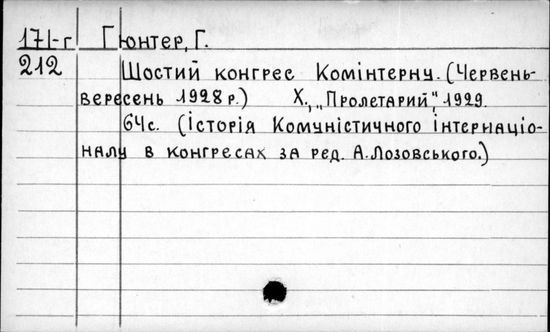 171-г Гюнтер, Г.
212 Шостий конгрес Комінтерну. (Червень-
вересень 1928 р.) Х., „Пролетарий“, 1929.
64с. (історія Комуністичного інтернаціо-
налу в конгресах за ред. А.Лозовського.)